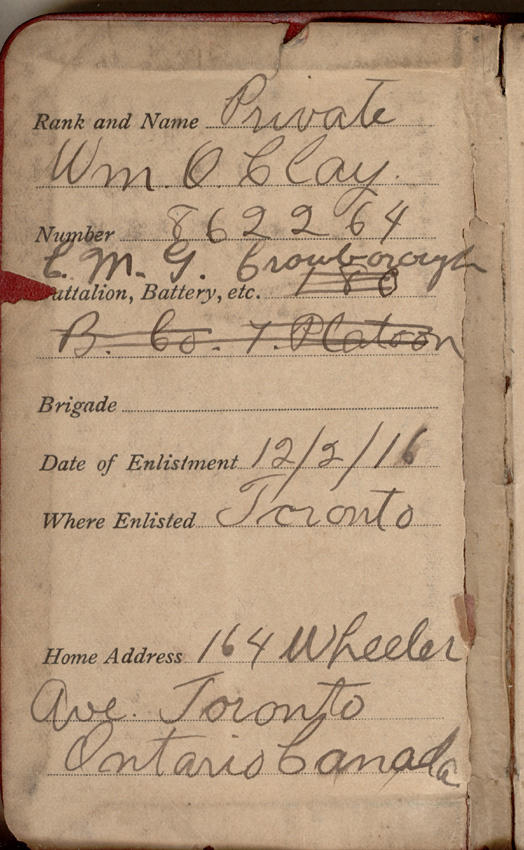 Rank and Name Private
Wm. O. Clay.
Number 862264
C. M. G. Crowborough
attalion, Battery, etc. 180
B. Co. 7. Platoon
Brigade
Date of Enlistment 12/2/16
Where Enlisted Toronto
Home Address 164 Wheeler
Ave. Toronto
Ontario Canada